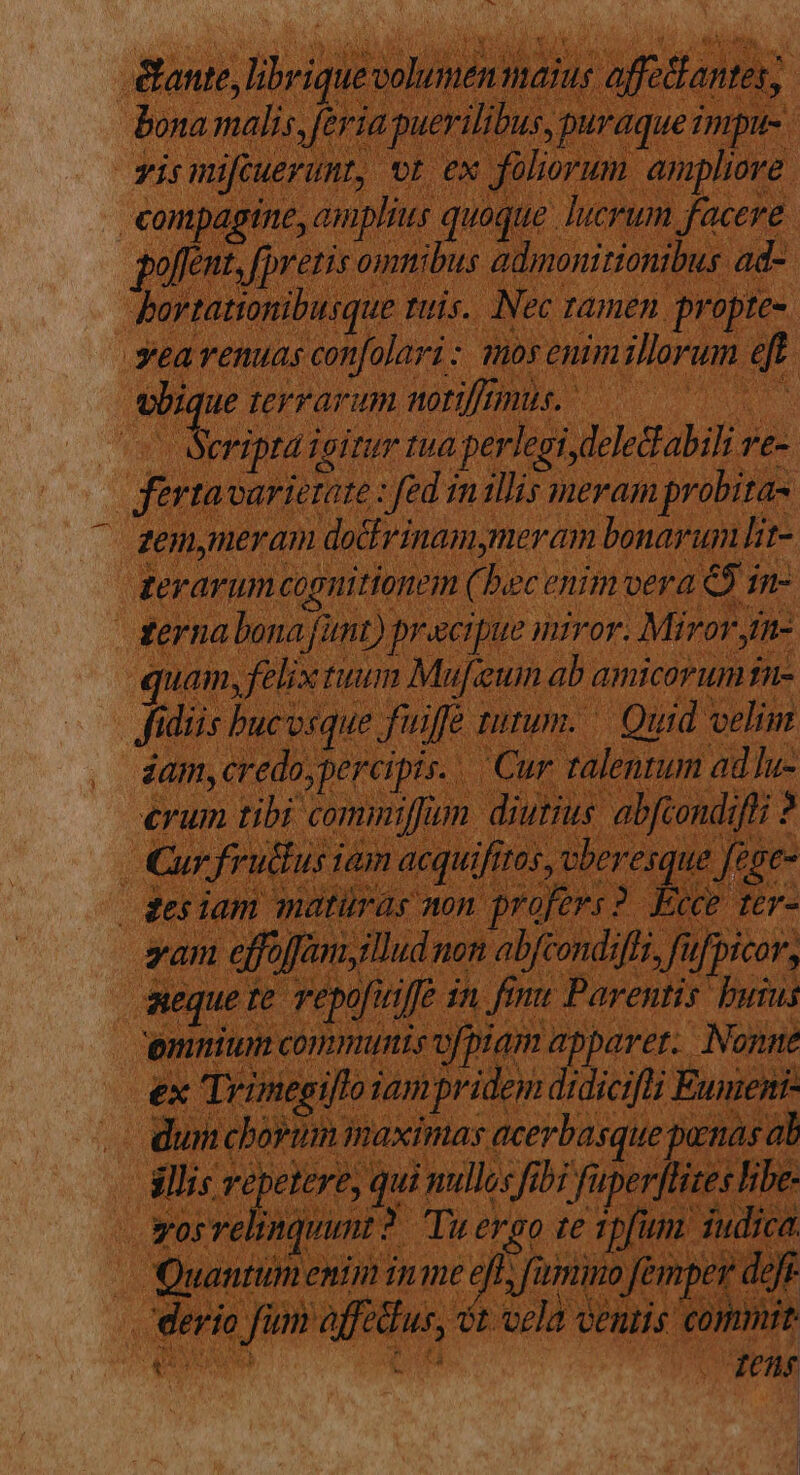 ctante, librique volumen maius affectantes,
bona malis, seria puerilibus, puraque impu-
ris miſcuerunt, vt ex foliorum ampliore
compagine, amplius quoque lucrum facere
poſſent, ſpretis omnibus admonitionibus ad-
hortationibusque tuis. Nec tamen propte-
rea renuas conſolari: mos enim illorum eſt
vbique terrarum notiſſimus.
Scripta igitur tua perlegi, delectabili re-
ferta varietate: ſed in illis meram probita-
tem, meram doctrinam, meram bonarum lit-
terarum cognitionem (hæc enim vera & in-
terna bona ſunt) præcipue miror. Miror, in-
quam, felix tuum Muſæum ab amicorum in-
ſidiis hucvsque fuiſſe tutum. Quid velim
iam, credo, percipis. Cur talentum ad lu-
crum tibi commiſſum diutius abſcondiſti?
Cur fructus iam acquiſitos, vberesque ſege-
tes iam maturas non profers? Ecce ter-
ram effoſſam, illud non abſcondiſti, ſuſpicor,
neque te repoſuiſſe in ſinu Parentis huius
omnium communis vſpiam apparet. Nonne
ex Trimegiſto iampridem didiciſti Eumeni-
dum chorum maximas acerbasque pœnas ab
illis repetere, qui nullos ſibi ſuperſtites libe-
ros relinquunt? Tu ergo te ipſum iudica.
Quantum enim in me eſt, ſummo ſemper deſi-
derio ſum affectus, vt vela ventis commit-
tens